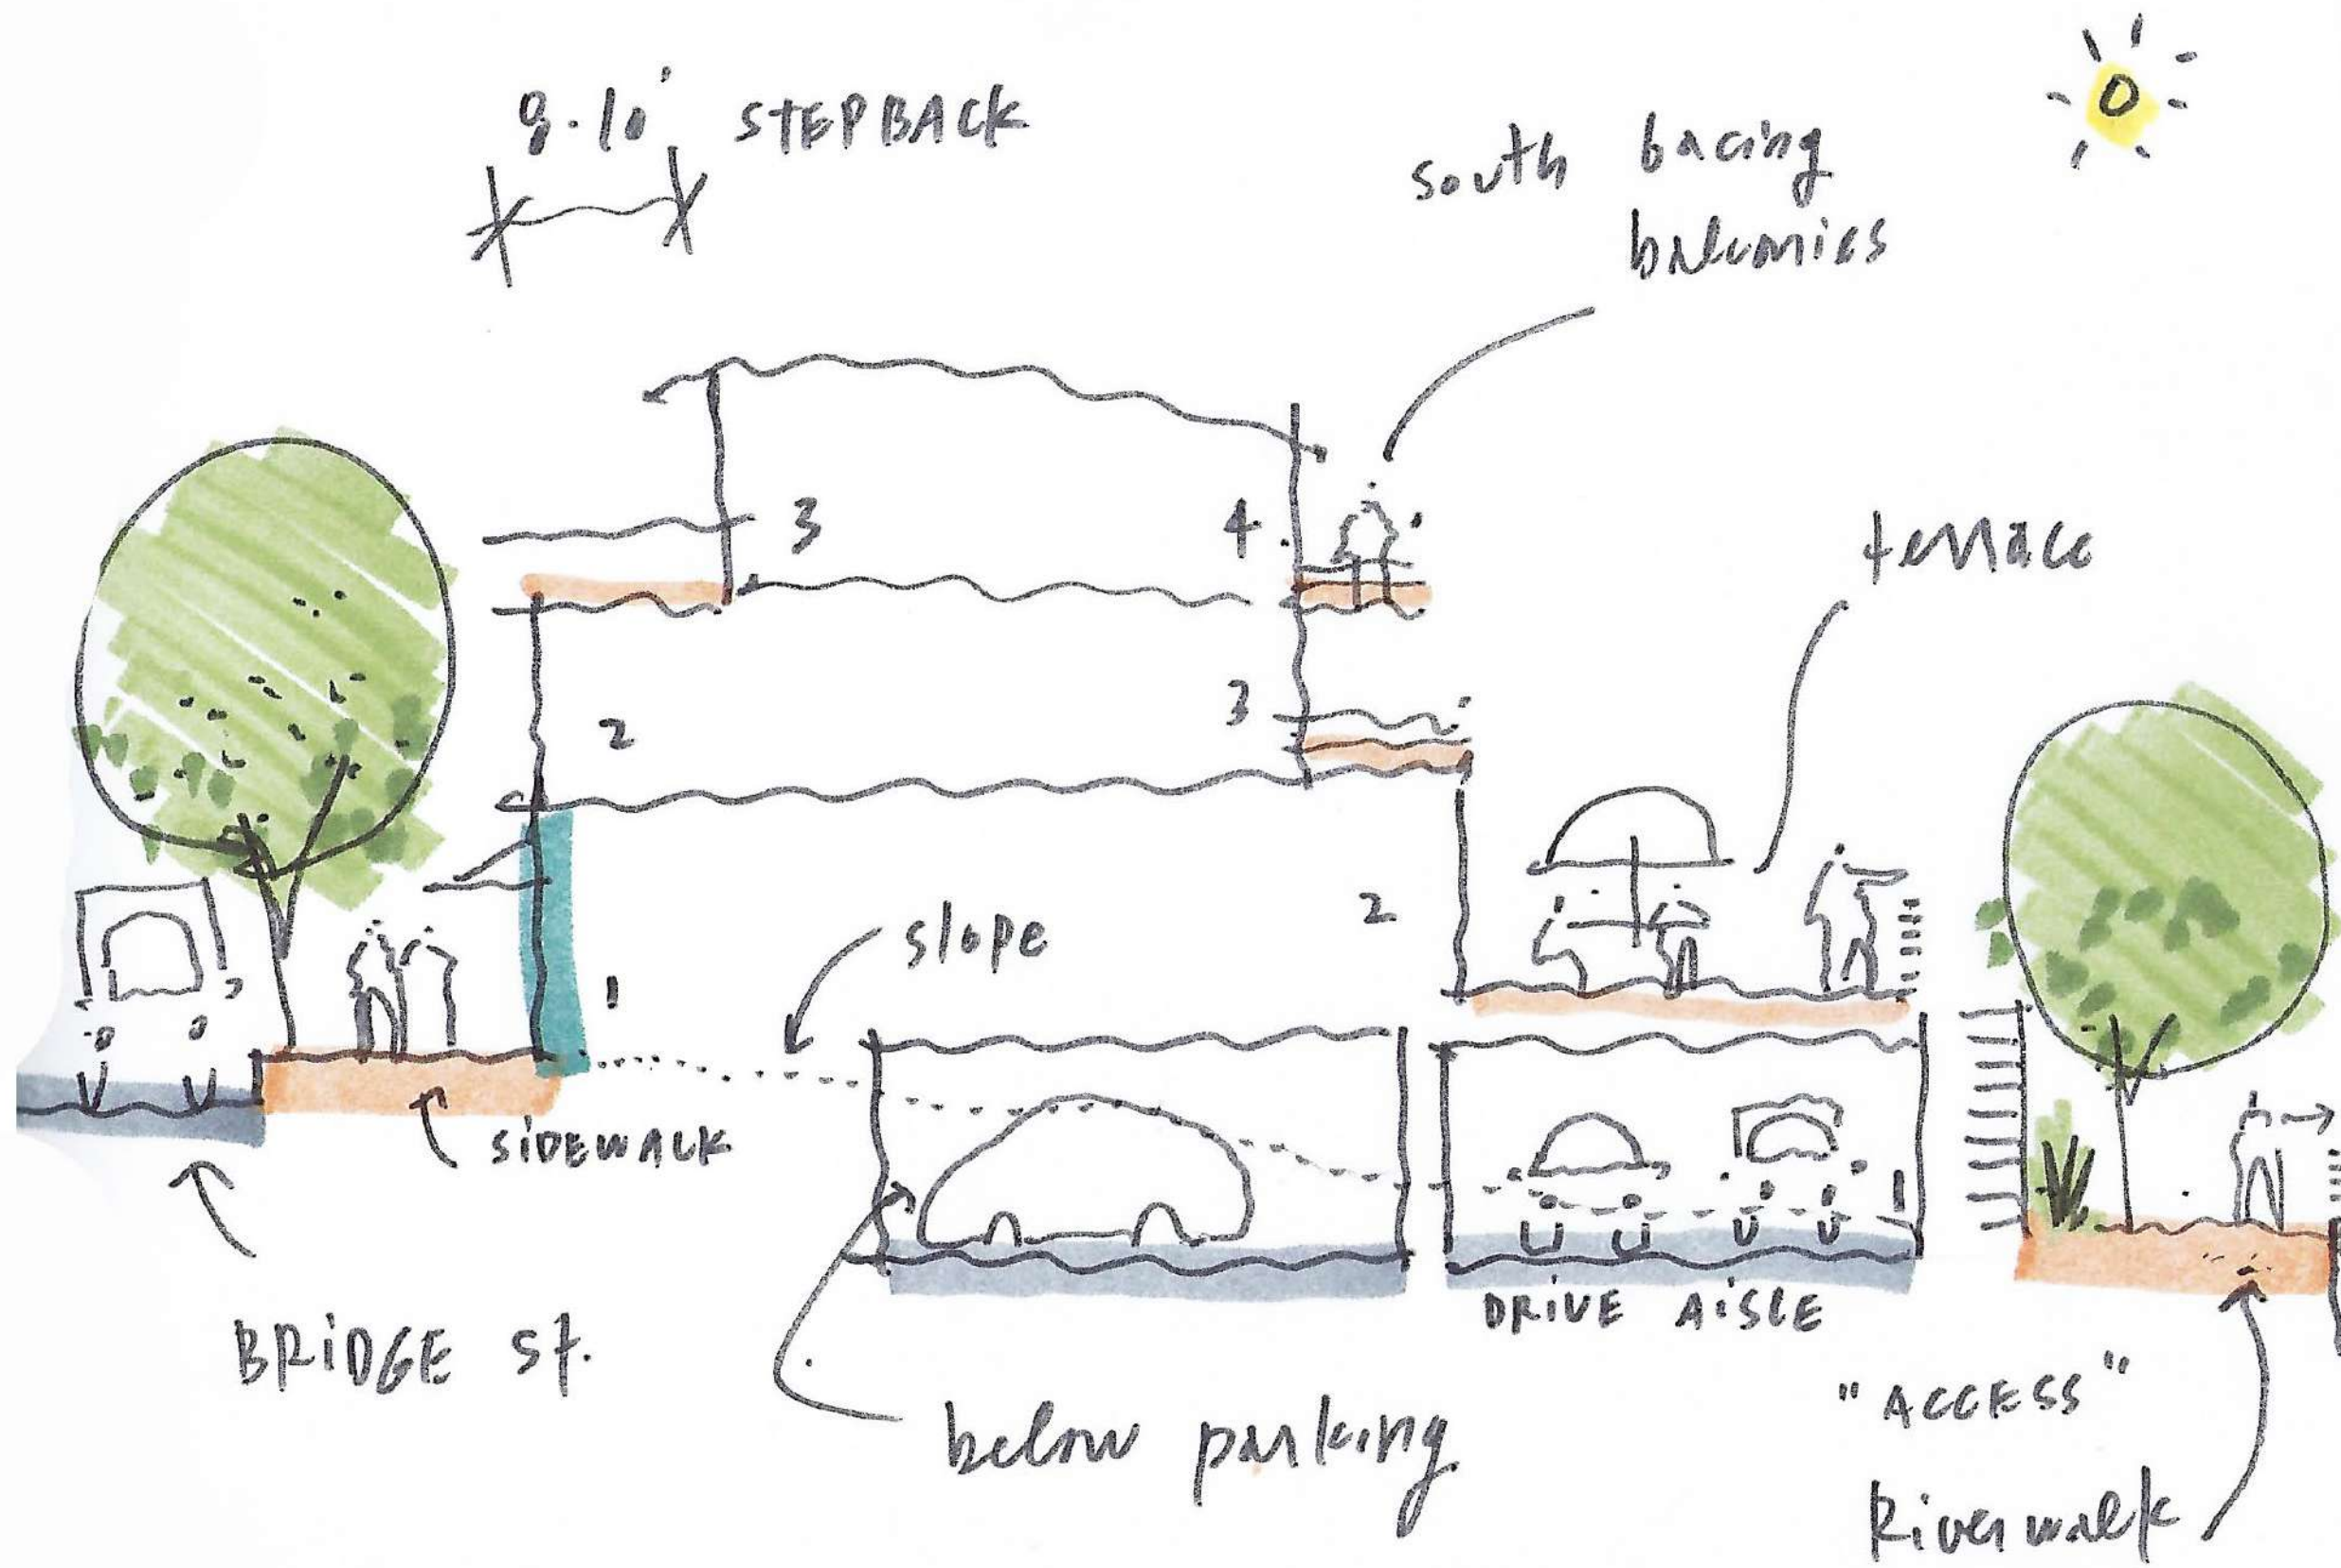 8-10' STEPBACK
south facing
balconies
3
4
terrace
2
3
slope
2
1
SIDEWALK
1
DRIVE AISLE
BRIDGE St.
"ACCESS"
below parking
Riverwalk